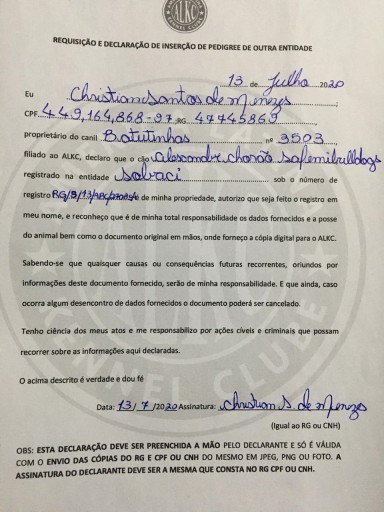 ALKC
REQUISIÇÃO E DECLARAÇÃO DE INSERÇÃO DE PEDIGREE DE OUTRA ENTIDADE
13 de Julho 2020
Eu Christian Santos de Menezes
CPF 449,164,868-97 RG 47745869
proprietário do canil Batutinhas nº 3503
filiado ao ALKC, declaro que o cão alescandre chorão safemibulldogs
registrado na entidade salvaci sob o número de
registro de minha propriedade, autorizo que seja feito o registro em
meu nome, e reconheço que é de minha total responsabilidade os dados fornecidos e a posse
do animal bem como o documento original em mãos, onde forneço a cópia digital para o ALKC.
Sabendo-se que quaisquer causas ou consequências futuras recorrentes, oriundos por
informações deste documento fornecido, serão de minha responsabilidade. E que ainda, caso
ocorra algum desencontro de dados fornecidos o documento poderá ser cancelado.
Tenho ciência dos meus atos e me responsabilizo por ações cíveis e criminais que possam
recorrer sobre as informações aqui declaradas.
O acima descrito é verdade e dou fé
Data: 13/7/2020 Assinatura: Christian S de Menezes
(Igual ao RG ou CNH)
OBS: ESTA DECLARAÇÃO DEVE SER PREENCHIDA A MÃO PELO DECLARANTE E SÓ É VÁLIDA
COM O ENVIO DAS CÓPIAS DO RG E CPF OU CNH DO MESMO EM JPEG, PNG OU FOTO. A
ASSINATURA DO DECLARANTE DEVE SER A MESMA QUE CONSTA NO RG CPF OU CNH.